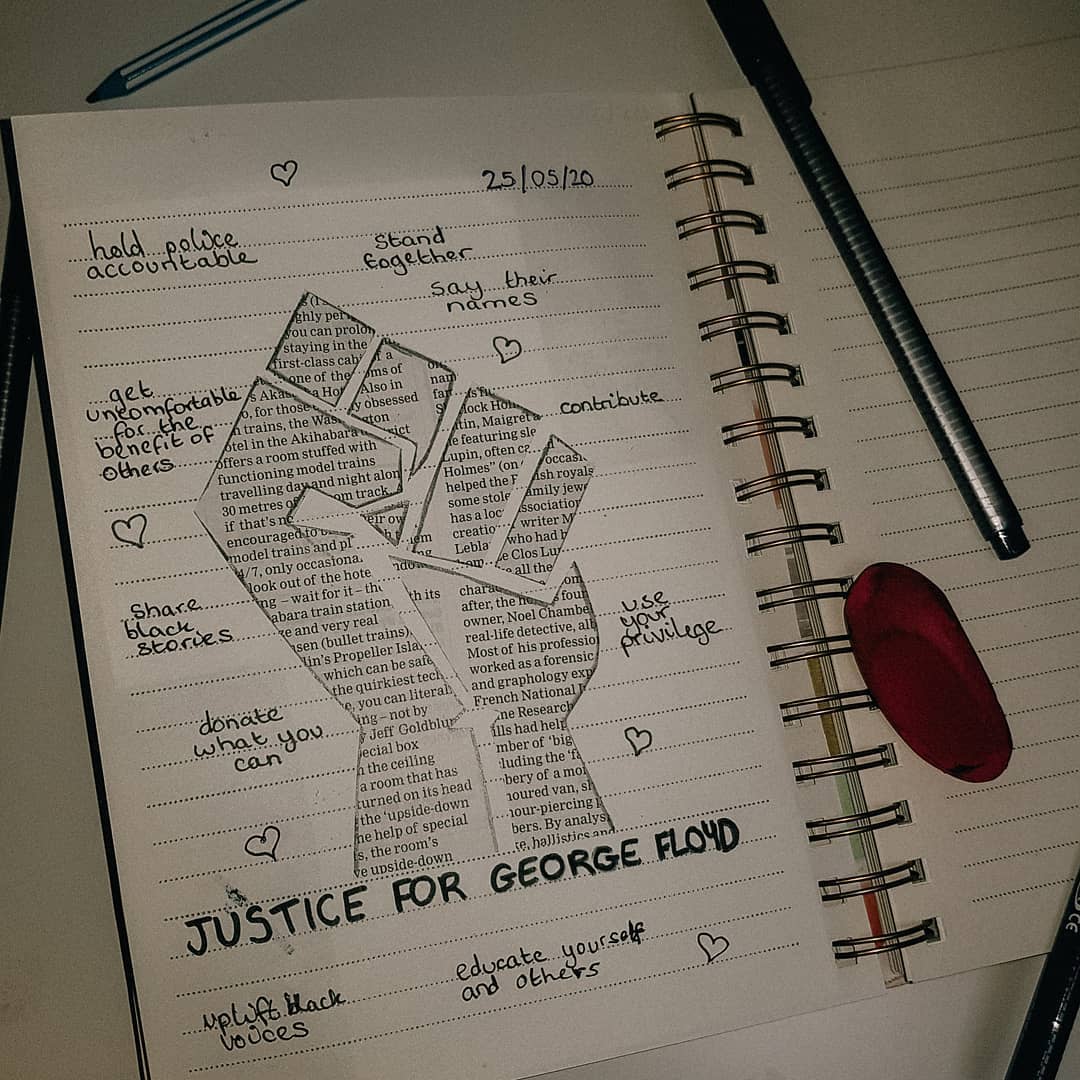 25/05/20
hold police
accountable
stand
together
say their
names
get
uncomfortable
for the
benefit of
others
contribute
share
black
stories
use
your
privilege
donate
what you
can
ghly per
you can prolo
staying in the
first-class cab
one of the
Also in
y obsessed
o, for those
n trains, the Was
otel in the Akihabara
offers a room stuffed with
functioning model trains
travelling day and night alon
30 metres of
om track
if that's n
encouraged to
model trains and pl
4/7, only occasiona
look out of the hote
ng – wait for it – th
abara train station
ge and very real
sen (bullet trains)
in's Propeller Isla
which can be safe
the quirkiest tech
e, you can literal
ing – not by
y Jeff Goldblu
ecial box
n the ceiling
a room that has
turned on its head
the 'upside-down
he help of special
s, the room's
ve upside-down
lock Hol
tin, Maigret a
e featuring sle
Lupin, often c
Holmes" (on
helped the F
some stole
has a loc
creatio
Lebla
occasi
ish royals
amily jewe
ssociation
writer M
who had
e Clos Lu
all the
chara
after, the
four
owner, Noel Chambe
real-life detective, alb
Most of his professio
worked as a forensic
and graphology exp
French National
ne Research
ills had help
mber of 'big
luding the 'fa
bery of a mo
noured van, s
nour-piercing
bers. By analys
e, ballistics and
JUSTICE FOR GEORGE FLOYD
educate yourself
and others
uplift black
voices